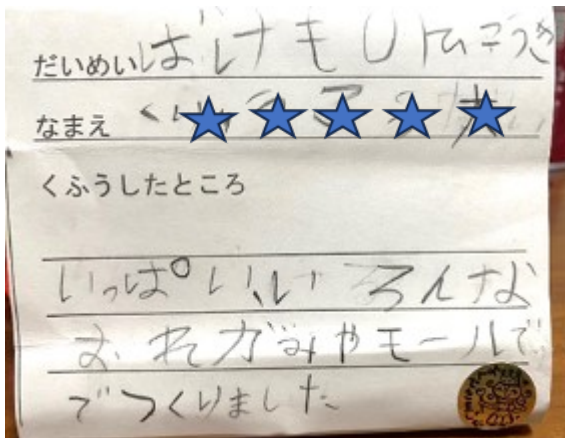 だいめい ばけもひこうき
なまえ く
くふうしたところ
いっぱいいいろんな
おれがみやモールで
でつくりました